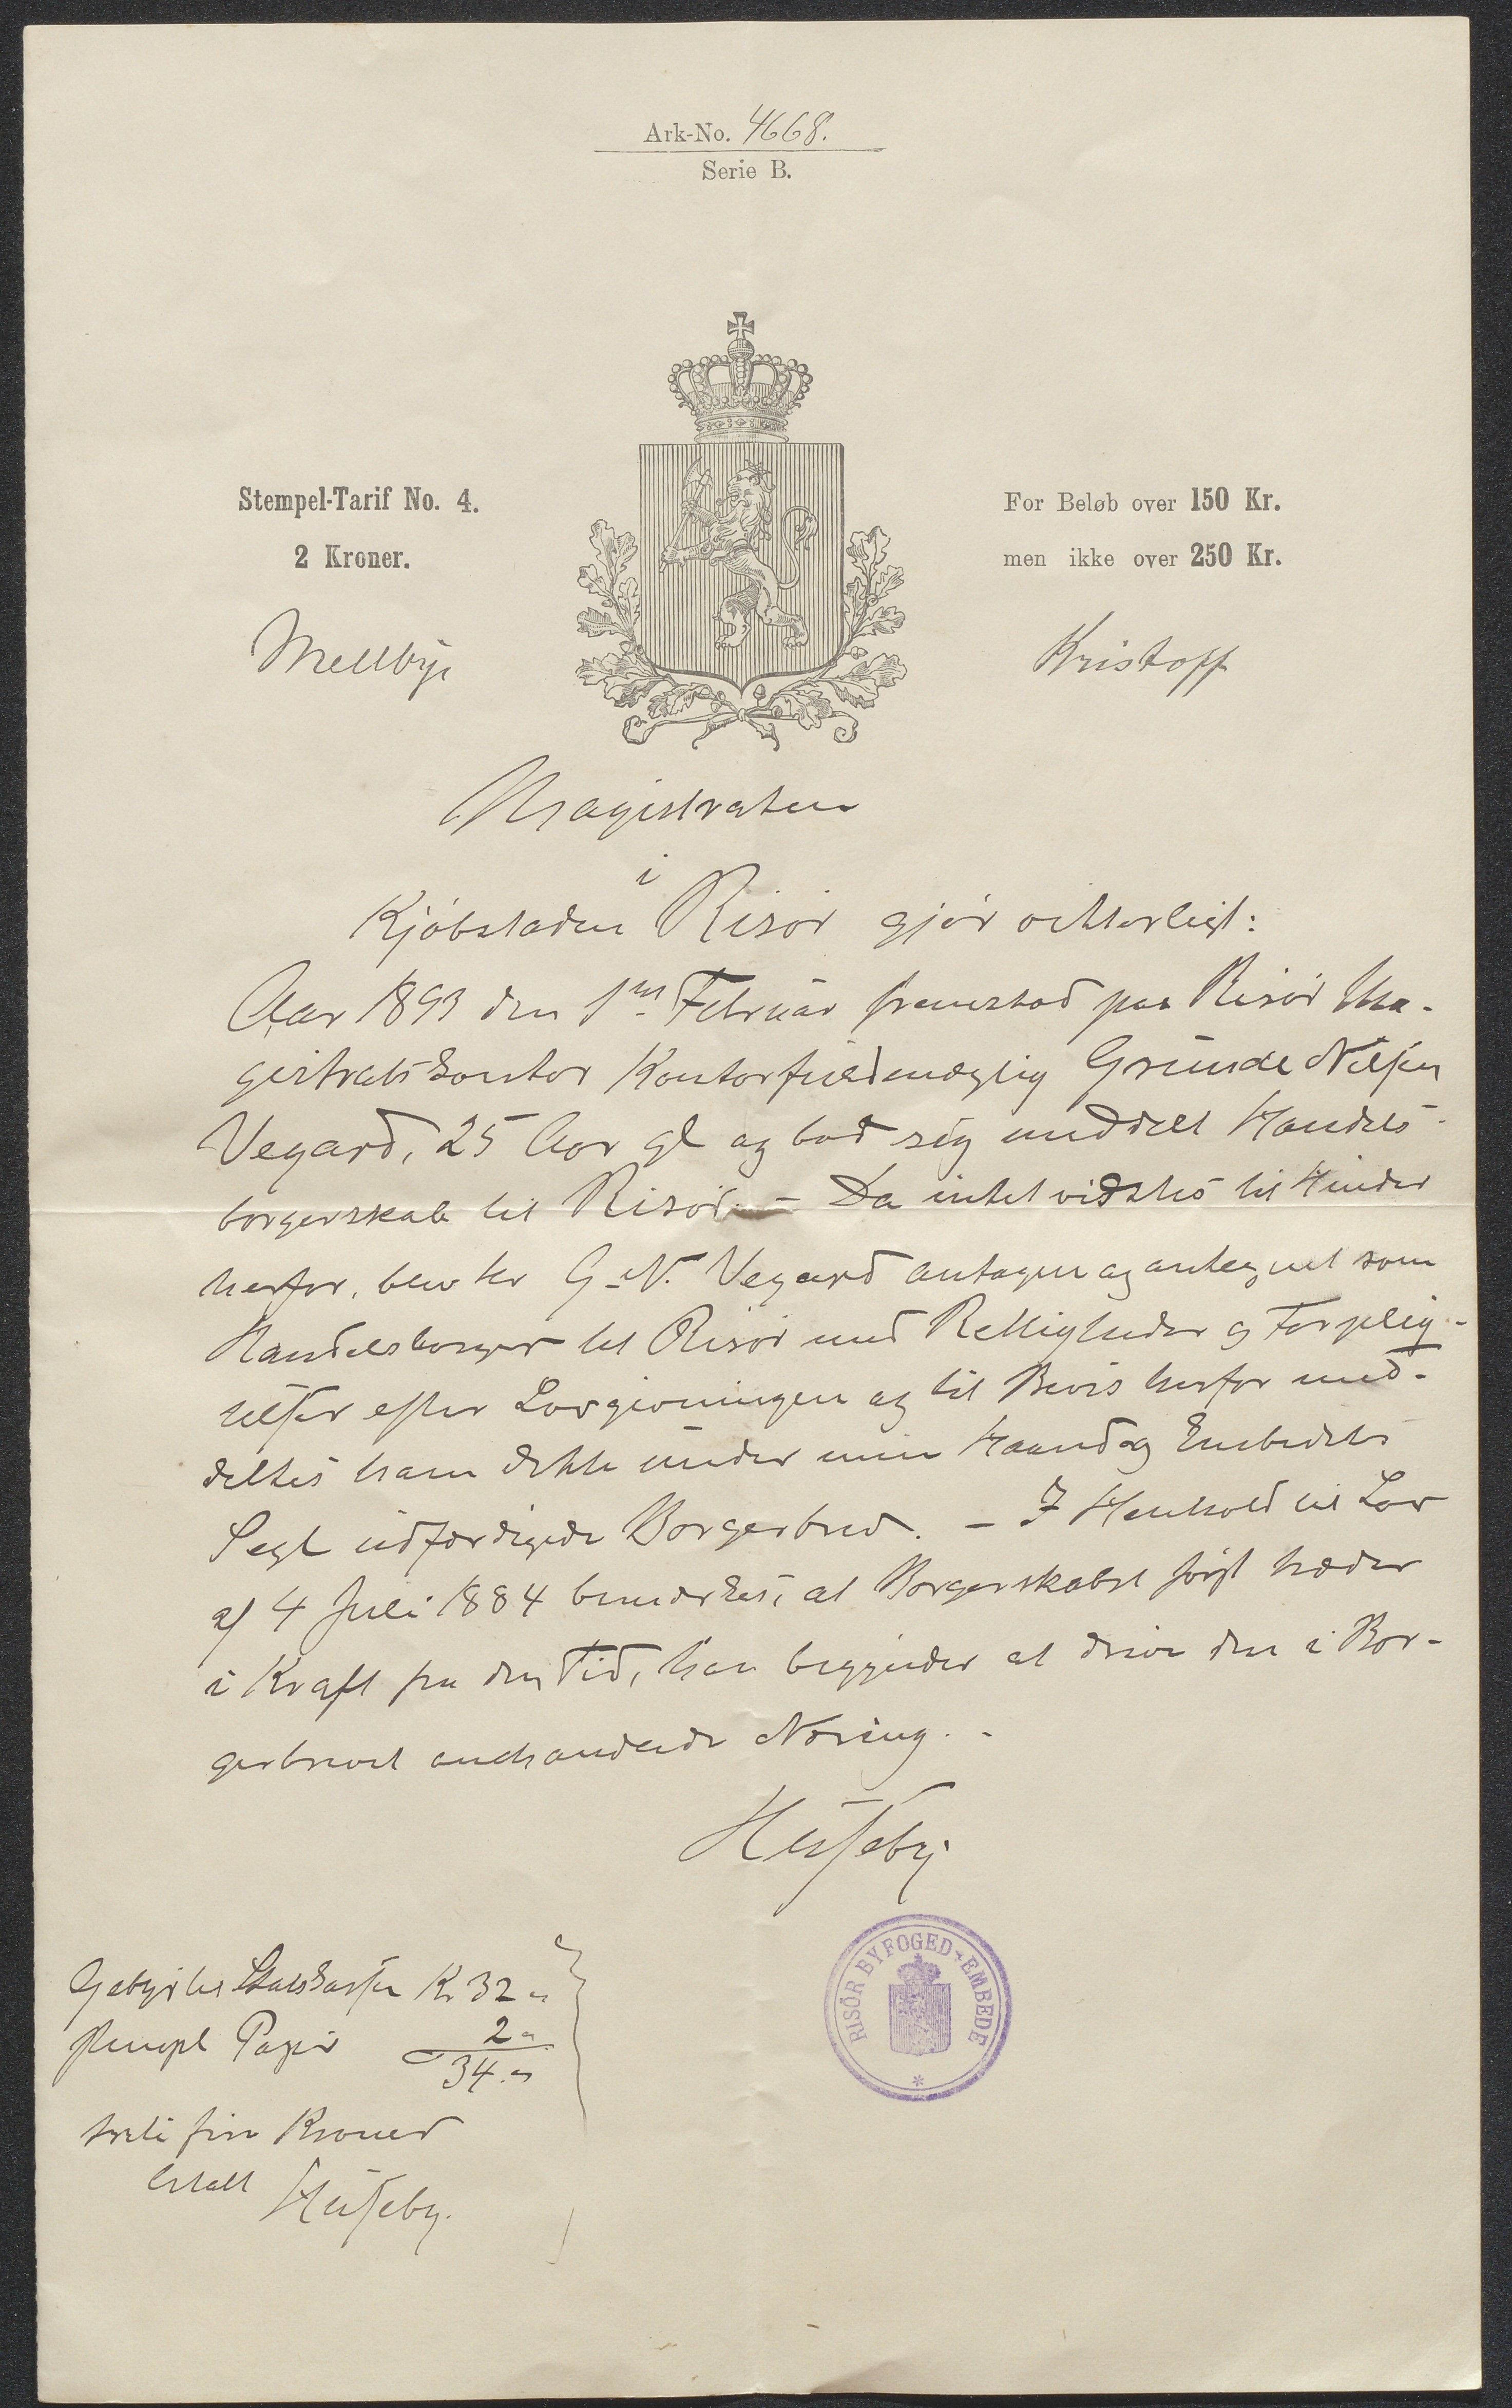 Ark-No. 4668.
Serie B.
Stempel-Tarif No. 4.
2 Kroner.
For Beløb over 150 Kr.
men ikke over 250 Kr.
Mellbye
Kristoff
Magistraten
i
Kjøbstaden Risør gjør vitterligt:
Aar 1893 den 1ste Februar fremstod paa Risør Ma-
gistratskontor Kontorfuldmægtig Gründe Nilsen
Vegard, 25 Aar gl og bad sig meddelt Handels-
borgerskab til Risør. – Da intet vidstes til Hinder
herfor, blev hr G. N. Vegard antagen og antegnet som
Handelsborger til Risør med Rettigheder og Forplig-
telser efter Lovgivningen og til Bevis herfor med-
deltes ham dette under min Haand og Embedets
Segl udfærdigede Borgerbrev. – I Henhold til Lov
af 4 Juli 1884 bemærkes, at Borgerskabet først træder
i Kraft fra den Tid, han begynder at drive den i Bor-
gerbrevet omhandlede Næring. -
Huseby
Gebyr til Statskassen Kr 32 "
stempl Papir 2 "
34. "
treti fire Kroner
betalt Huseby.
RISÖR BYFOGED-EMBEDE